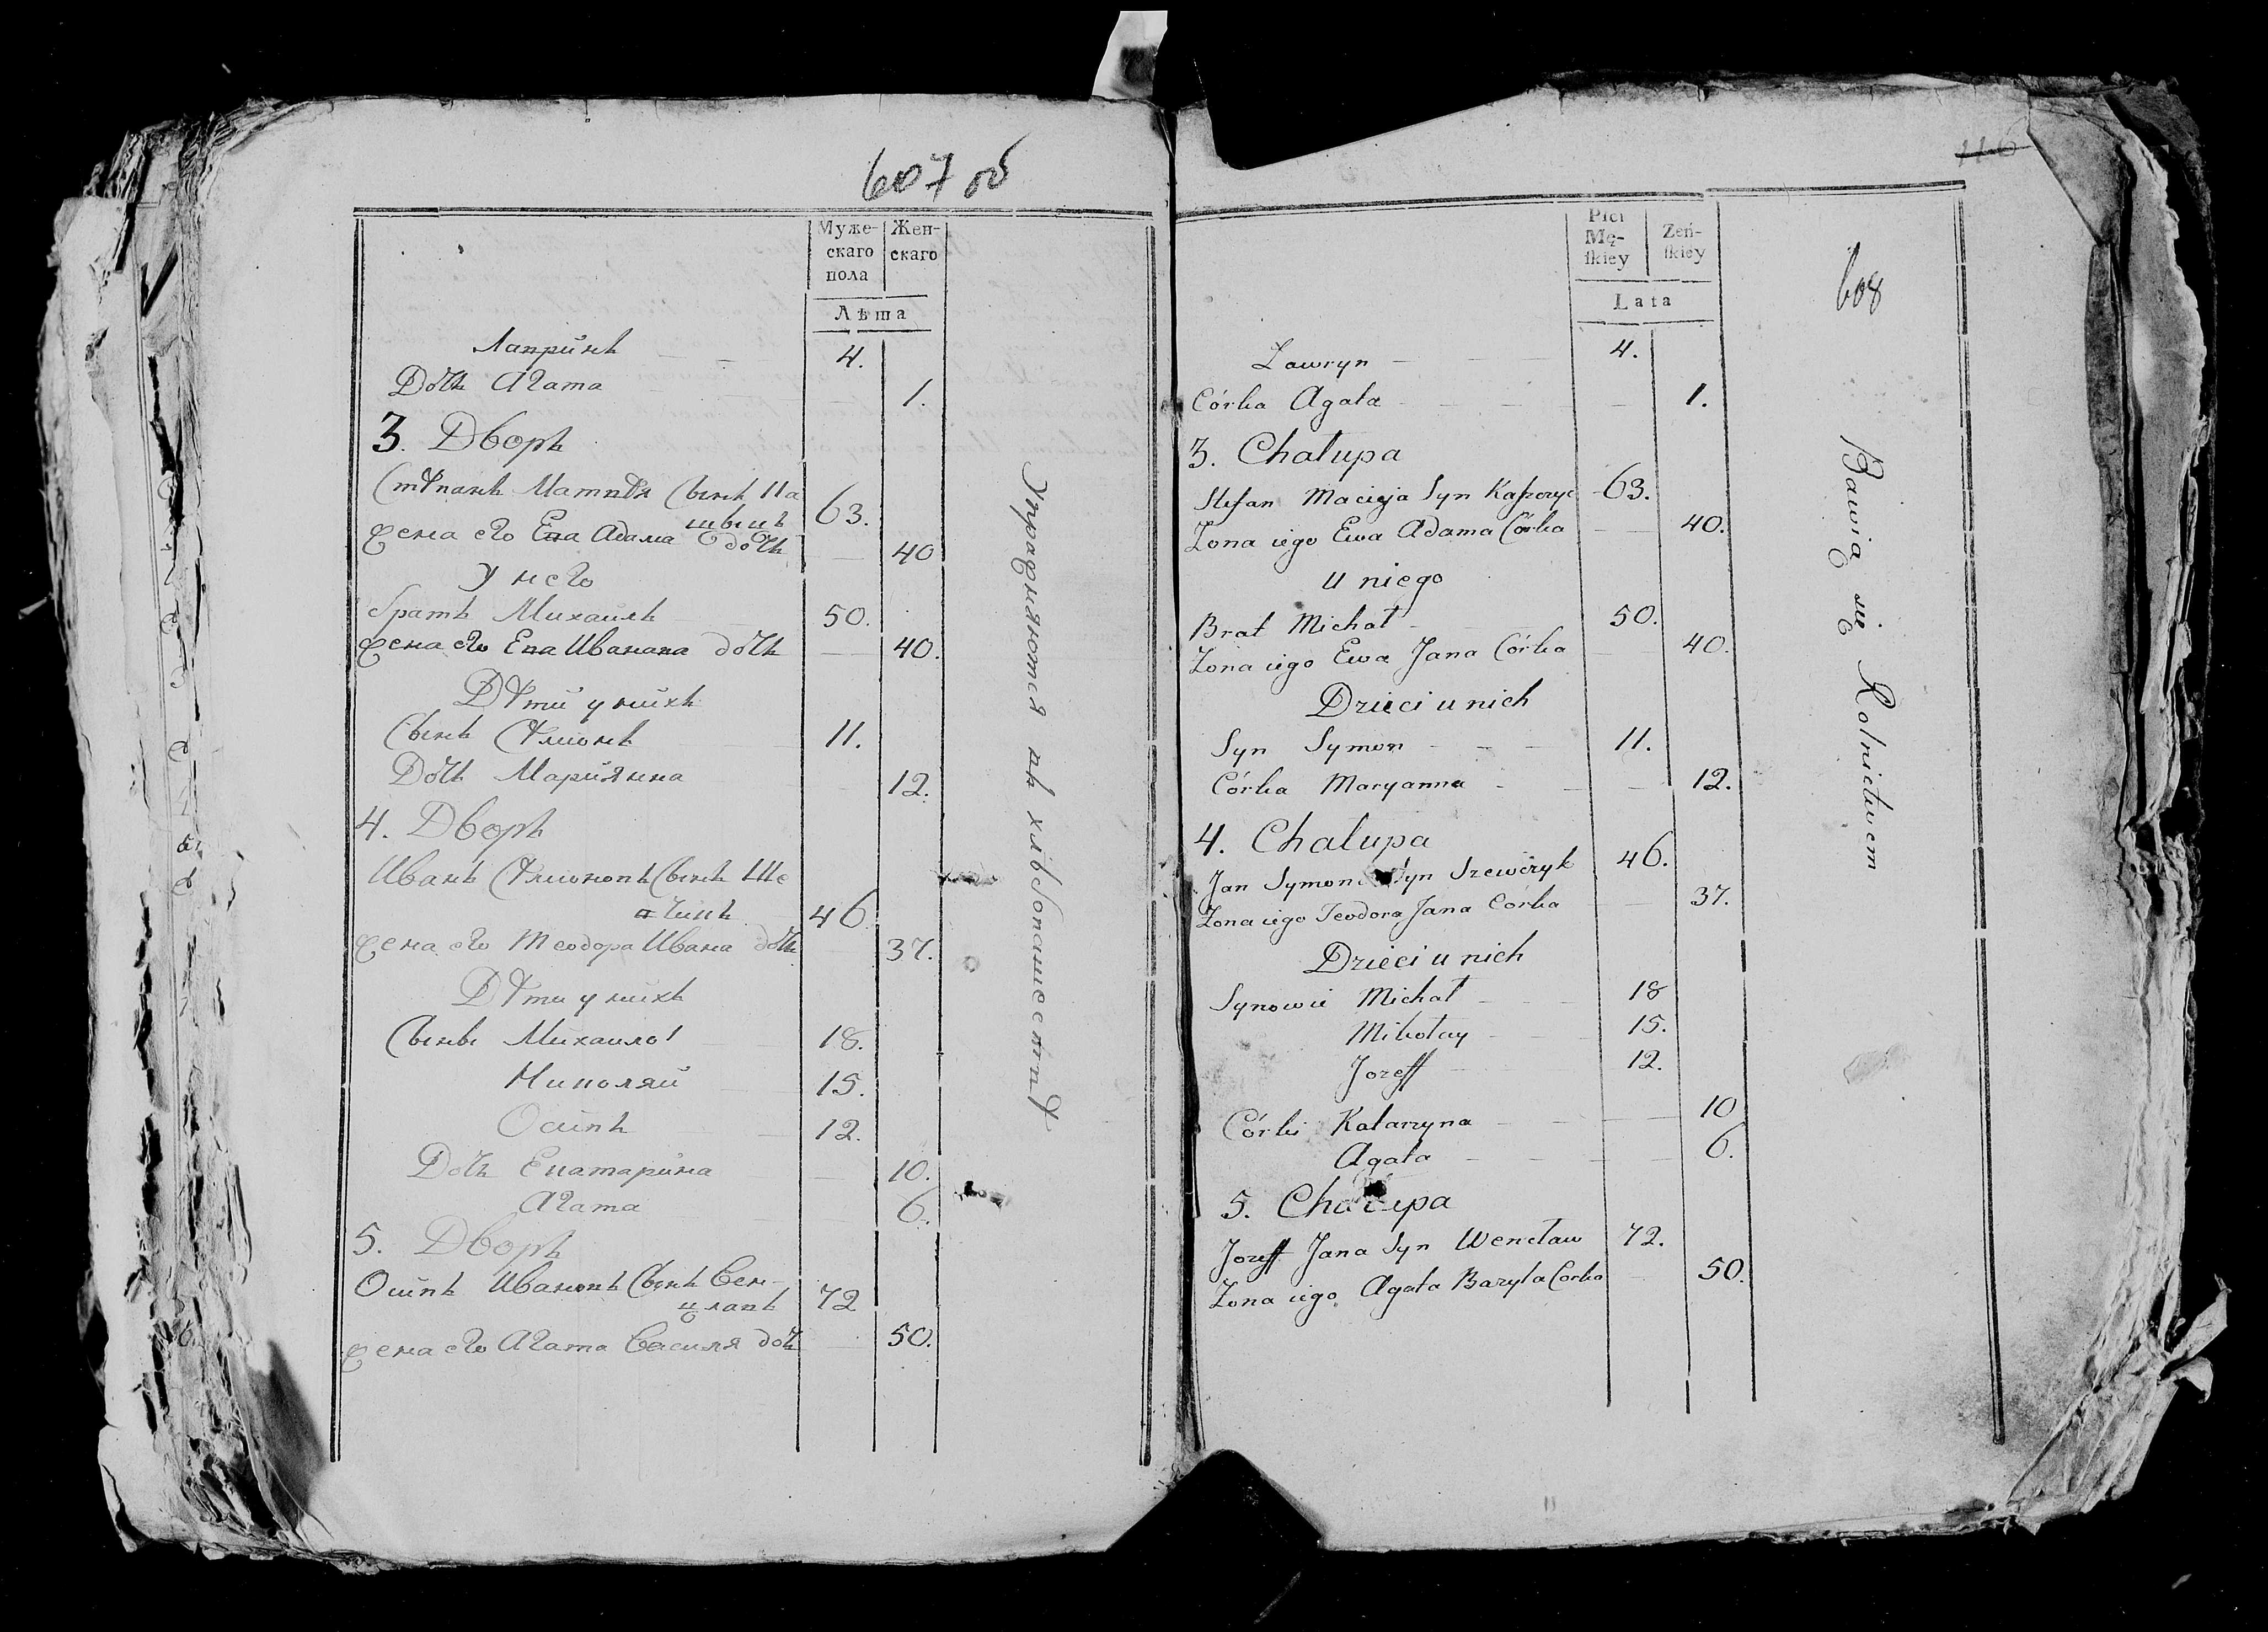 607 об
Муже-
скаго
пола
Жен-
скаго
Лѣта
Лавринъ 4.
Дочь Агата 1.
3. Дворъ
Стѣпанъ Матвѣя Сынъ 63.
Жена его Ева Адама дочь 40
У него
братъ Михаилъ 50.
Жена его Ева Ивана дочь 40.
Дѣти у нихъ
Сынъ Сѣмионъ 11.
Дочь Марияна 12.
4. Дворъ
Иванъ Сѣмионовъ Сынъ Ше
46
Жена его Теодора Ивана дочь 37.
Дѣти у нихъ
Сыны Михаило 18.
Николай 15.
Осипъ 12.
Дочь Екатарина 10.
Агата 6.
5. Дворъ
Осипъ Ивановъ Сынъ Вен-
цлавъ 72
Жена его Агата Василя дочь 50.
Упражняются въ хлѣбопашествѣ
116
608
Płci
Mę-
ſkiey
Żeń-
ſkiey
Lata
Ławryn 4.
Córka Agata 1.
3. Chałupa
Stefan Macieja Syn 63.
Żona iego Ewa Adama Córka 40.
u niego
Brat Michał 50.
Żona iego Ewa Jana Córka 40.
Dzieci u nich
Syn Symon 11.
Córka Maryanna 12.
4. Chałupa
Jan Symona Syn Szewczyk 46.
Żona iego Teodora Jana Corka 37.
Dzieci u nich
Synowie Michał 18
Mikołay 15.
Jozeff 12.
Córki Katarzyna 10
Agata 6.
5. Chałupa
Jozeff Jana Syn Wencław 72.
Żona iego Agata Bazyla Corka 50.
Bawią się Rolnictwem